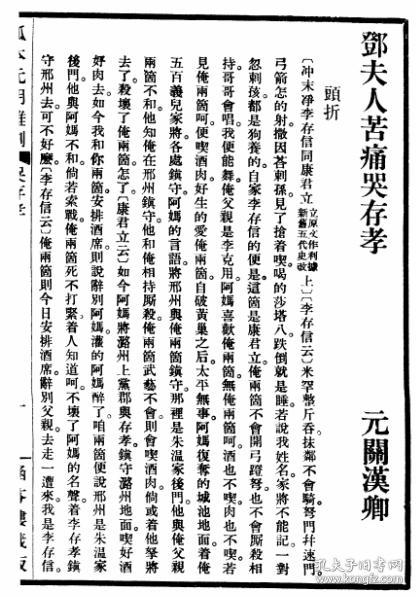 鄧夫人苦痛哭存孝
元關漢卿
頭折
〔冲末淨李存信同康君立立原文作利據新舊五代史改上〕〔李存信云〕米罕整斤吞抹鄰不會騎弩門并速門
弓箭怎的射撒因答剌孫見了搶着喫喝的莎塔八跌倒就是睡若說我姓名家將不能記一對
忽剌孩都是狗養的自家李存信的便是這箇是康君立俺兩箇不會開弓蹬弩也不會厮殺相
持哥哥會唱我便能舞俺父親是李克用阿媽喜歡俺兩箇無俺兩箇呵酒也不喫肉也不喫若
見俺兩箇呵便喫酒肉好生的愛俺兩箇自破黃巢之后太平無事阿媽復奪的城池地面着俺
五百義兒家將各處鎮守阿媽的言語將邢州與俺兩箇鎮守那裡是朱温家後門他與俺父親
兩箇不和他知俺在邢州鎮守他和俺相持厮殺俺兩箇武藝不會則會喫酒肉倘或着他拏將
去了殺壞了俺兩箇怎了〔康君立云〕如今阿媽將潞州上黨郡與存孝鎮守潞州地面喫好酒
好肉去如今我和你兩箇安排酒席則說辭別阿媽灌的阿媽醉了咱兩箇便說邢州是朱温家
後門他與阿媽不和倘若索戰俺兩箇死不打緊着人知道呵不壞了阿媽的名聲着李存孝鎮
守邢州去可不好麽〔李存信云〕俺兩箇則今日安排酒席辭別父親去走一遭來我是李存信
孤本元明雜劇
哭存孝
一
涵芬樓藏版
孔夫子旧书网